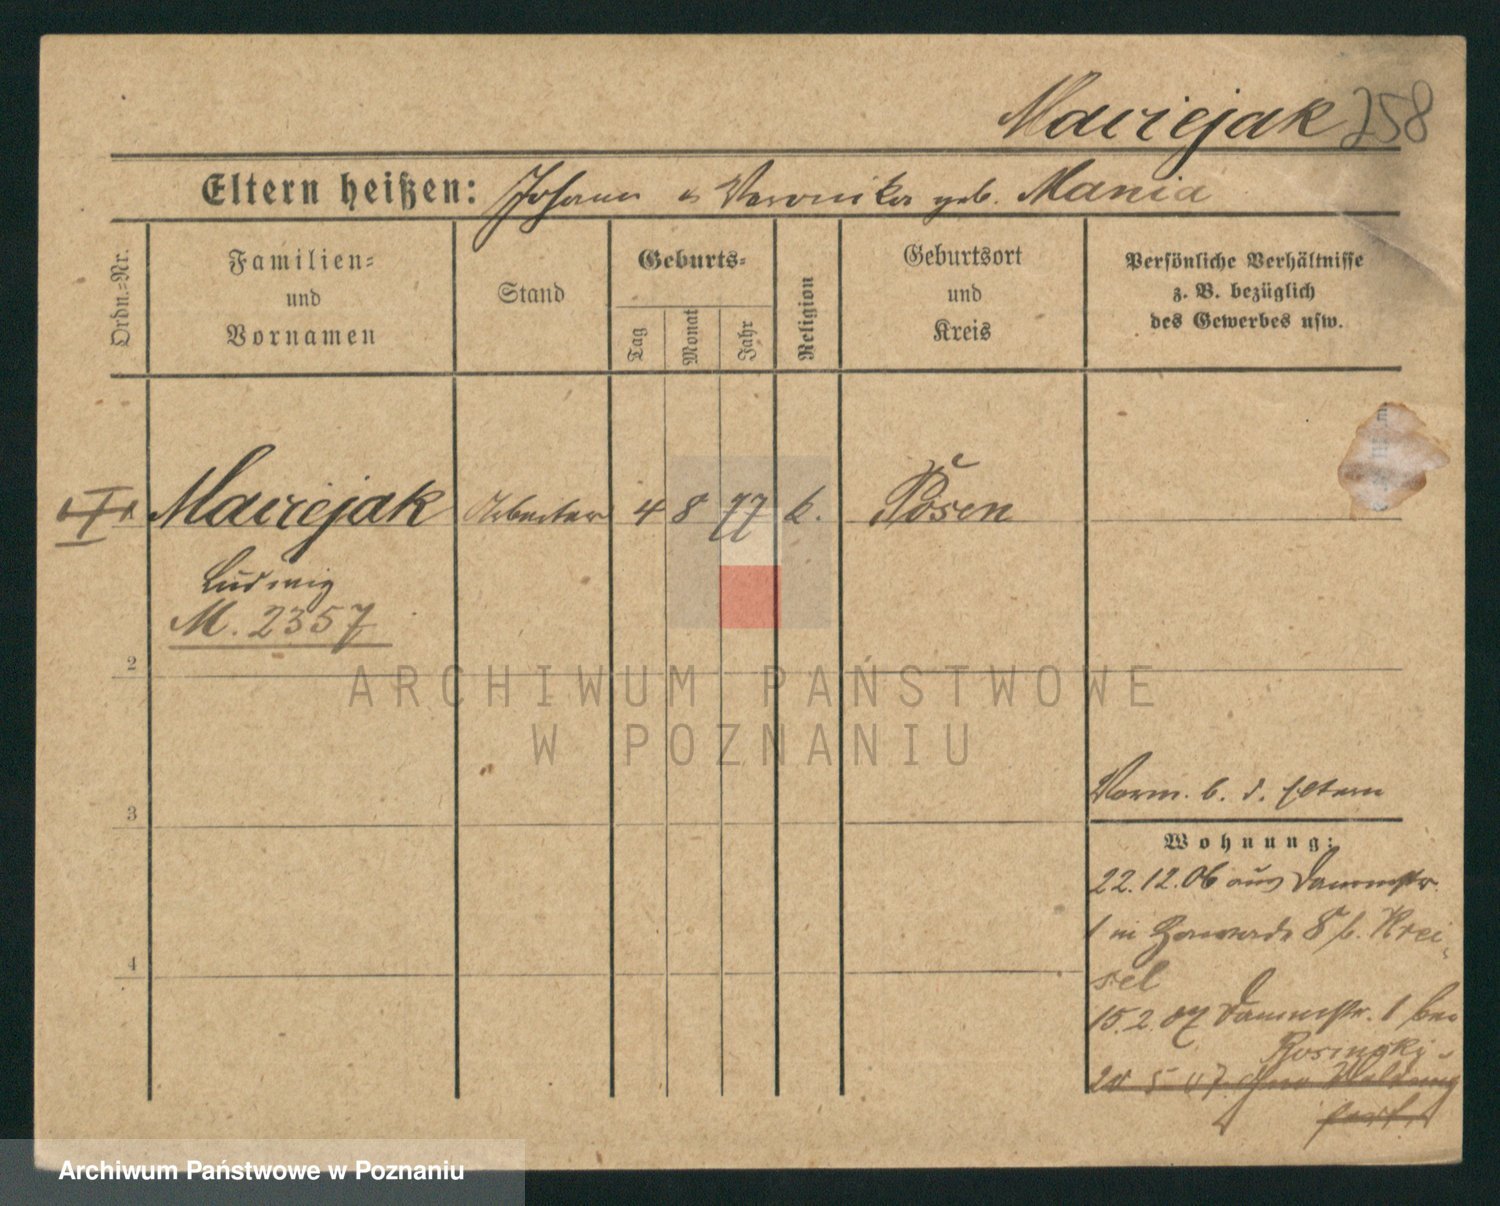 Maciejak 258
Eltern heißen: Johann u Veronika geb. Mania
Ordn.=Nr.
Familien=
und
Vornamen
Stand
Geburts=
Tag
Monat
Jahr
Religion
Geburtsort
und
Kreis
Persönliche Verhältnisse
z. B. bezüglich
des Gewerbes usw.
Maciejak Arbeiter 4 8 77 k. Posen
Ludwig
M. 2357
2
3
4
ARCHIWUM PAŃSTWOWE
W POZNANIU
Vorm. b. d. Eltern
Wohnung:
22.12.06 aus Dammstr.
1 in 8 b. Krei-
sel
15.2.07 Dammstr. 1 bei
Rosinski
5 07 ohne Meldung
fort
Archiwum Państwowe w Poznaniu